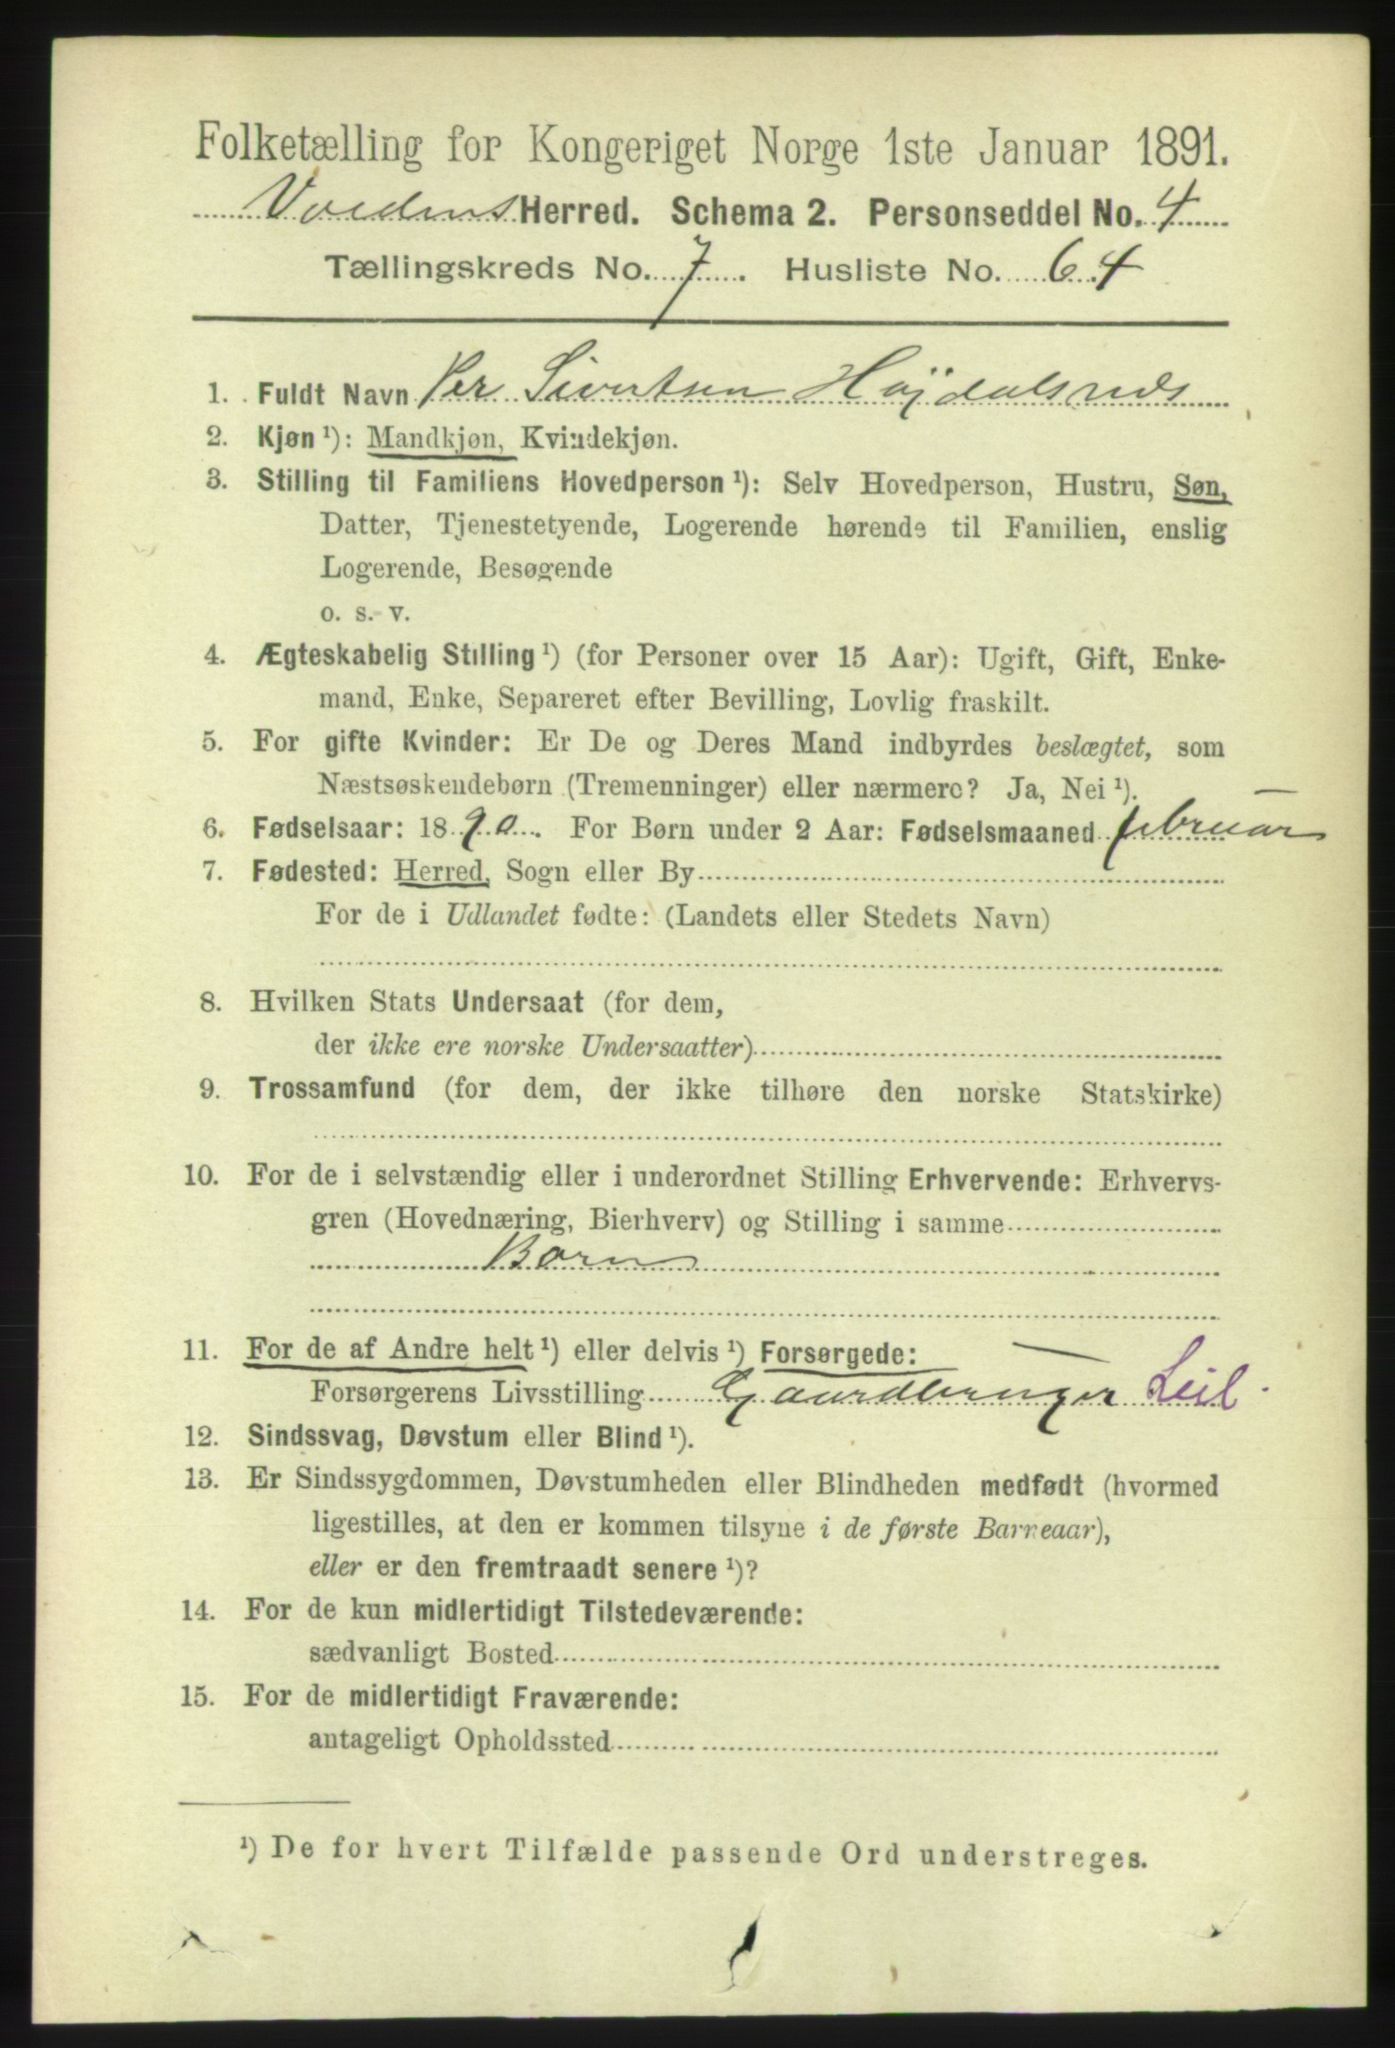 Folketælling for Kongeriget Norge 1ste Januar 1891.
Voldens Herred. Schema 2. Personseddel No. 4
Tællingskreds No. 7. Husliste No. 64
1. Fuldt Navn Per Sivertsen Højdalsneds
2. Kjøn ¹): Mandkjøn, Kvindekjøn.
3. Stilling til Familiens Hovedperson ¹): Selv Hovedperson, Hustru, Søn,
Datter, Tjenestetyende, Logerende hørende til Familien, enslig
Logerende, Besøgende
o. s. v.
4. Ægteskabelig Stilling ¹) (for Personer over 15 Aar): Ugift, Gift, Enke-
mand, Enke, Separeret efter Bevilling, Lovlig fraskilt.
5. For gifte Kvinder: Er De og Deres Mand indbyrdes beslægtet, som
Næstsøskendebørn (Tremenninger) eller nærmere? Ja, Nei ¹).
6. Fødselsaar: 1890. For Børn under 2 Aar: Fødselsmaaned februar
7. Fødested: Herred, Sogn eller By
For de i Udlandet fødte: (Landets eller Stedets Navn)
8. Hvilken Stats Undersaat (for dem,
der ikke ere norske Undersaatter)
9. Trossamfund (for dem, der ikke tilhøre den norske Statskirke)
10. For de i selvstændig eller i underordnet Stilling Erhvervende: Erhvervs-
gren (Hovednæring, Bierhverv) og Stilling i samme
Barn
11. For de af Andre helt ¹) eller delvis ¹) Forsørgede:
Forsørgerens Livsstilling Gaardbruger Leil.
12. Sindssvag, Døvstum eller Blind ¹).
13. Er Sindssygdommen, Døvstumheden eller Blindheden medfødt (hvormed
ligestilles, at den er kommen tilsyne i de første Barneaar),
eller er den fremtraadt senere ¹)?
14. For de kun midlertidigt Tilstedeværende:
sædvanligt Bosted
15. For de midlertidigt Fraværende:
antageligt Opholdssted
¹) De for hvert Tilfælde passende Ord understreges.